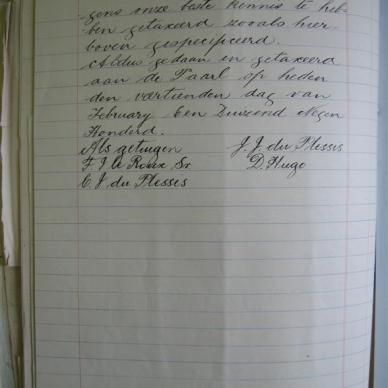 gens onze beste kennis te heb-
ben getaxeerd zooals hier-
boven gespecifieerd.
Aldus gedaan en getaxeerd
aan de Paarl op heden
den veertienden dag van
February Een Duizend Negen
Honderd.
Als getuigen J. J. du Plessis
F. J. le Roux Sr. D. Hugo
C. J. du Plessis